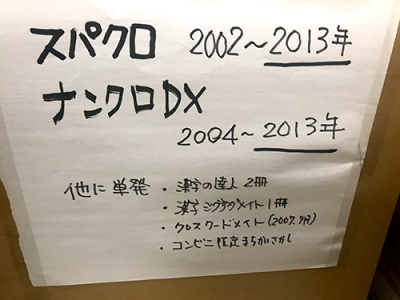 スパクロ 2002〜2013年
ナンクロDX
2004〜2013年
他に単発・漢字の達人 2冊
・漢字ジグザグメイト1冊
・クロスワードメイト(2007.7月)
・コンビニ限定まちがいさがし